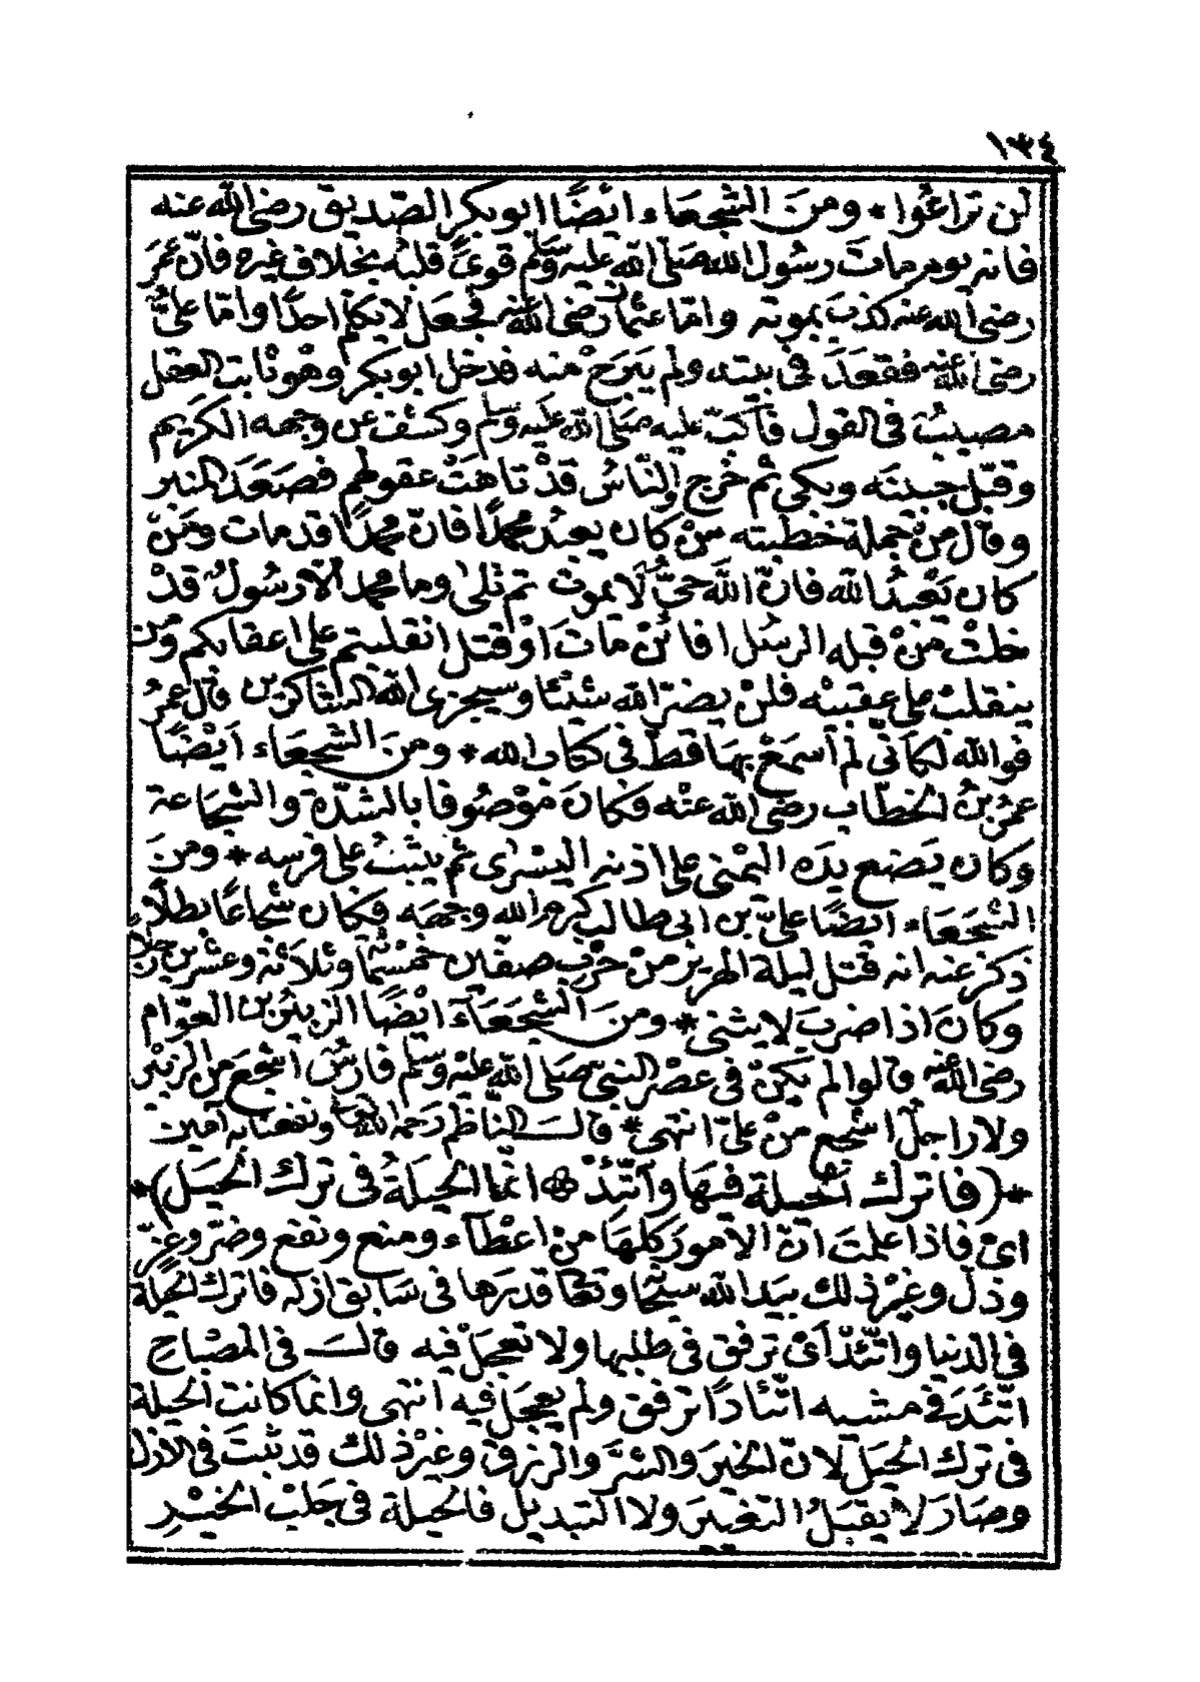 ١٣٤
لن تراعُوا * ومنَ الشجعاء ايضًا ابوبكر الصّديق رضى الله عنه
فانه يوم مات رسُول الله صَلى الله عليه وسَلم قوىَ قلبهُ بخلاف غيره فانّ عمَرَ
رضى الله عنه كذبَ بموته واما عثمان رضى الله عنه فجعَلَ لا يكلم احدًا واما علىٌّ
رضى الله عنه فقعَدَ فى بيته ولم يَبرَحْ منه فدخل ابوبكر وهوثابت العقل
مصيبٌ فى القول فأكبّ عليه صَلى الله عليه وسلم وكشف عن وجهه الكريم
وقبّل جبينَه وبكى ثم خرج والنّاسُ قدْ تاهَتْ عقولهم فصَعَدَ المنبر
وقال منْ جملة خطبته منْ كان يعبدُ محمدًا فانّ محمدًا قدمات ومَنْ
كان يَعْبدُ الله فانّ اللهَ حىٌّ لَا يموت ثم تلى وما محمد الّا رسُولٌ قدْ
خلتْ منْ قبله الرسُل افائنْ ماتَ اوْ قتل انقلبتم على اعقابكم ومن
ينقلبْ على عقبيْه فلنْ يضرّ الله شيئا وسيجزى الله الشاكرين قال عمرُ
فوالله لكأنّى لم أسمَعْ بهَا قطّ فى كتاب الله * ومنَ الشجعَاء ايْضًا
عمرُ بنُ الخطّاب رضى الله عنْه فكانَ موْصُوفا بالشدّة والشجَاعة
وكان يَضع يدَه اليمْنى على اذنه اليسْرى ثم يثبُ على فرسه * ومنَ
الشجَعَاء ايضًا علىّ بن ابى طالب كرم الله وجهَه فكان شجَاعًا بطلاً
ذكرَ عنه انه قتل ليلة الهرير منْ حرْب صفّين خمسَمائة وثلاثة وعشرين رجلا
وكانَ اذا ضربَ لا يثنى * ومنَ الشجعَآء ايْضًا الزبيْربن العوّام
رضى الله عنه قالوا لم يكنْ فى عصْر النبى صَلى الله عليْه وسَلم فارسٌ اشجع من الزبيْر
ولا راجلٌ اشجع منْ علىّ انتهى * قالَ النّاظم رَحمهُ الله تعالى ونفعنا به آمين
* (فاترك الحيلة فيهَا وآتّئدْ * انمّا الحيلَةُ فى ترك الحيَل) *
اىْ فاذا علمتَ انّ الامورَ كلهَا منْ اعْطآء ومنع ونفع وضرّ وعزّ
وذلّ وغيْر ذلك بيَد الله سبْحَانه وتعَالى قدرَها فى سَابق ازله فاترك الحيلة
فى الدنيا واتّئدْ أىْ ترفق فى طلبها ولا تعجَلْ فيه قالَ فى المصْبَاح
اتّئَدَ فى مشيه اتّئادًا ترفق ولم يعجَل فيه انتهى وانما كانت الحيلة
فى ترك الحيَل لانّ الخيرَ والشرَّ والرزق وغيْر ذلك قد ثبتَ فى الازل
وصَارَ لا يقبَلُ التغييرَ ولا التبديل فالحيلة فى جَلب الخيْر